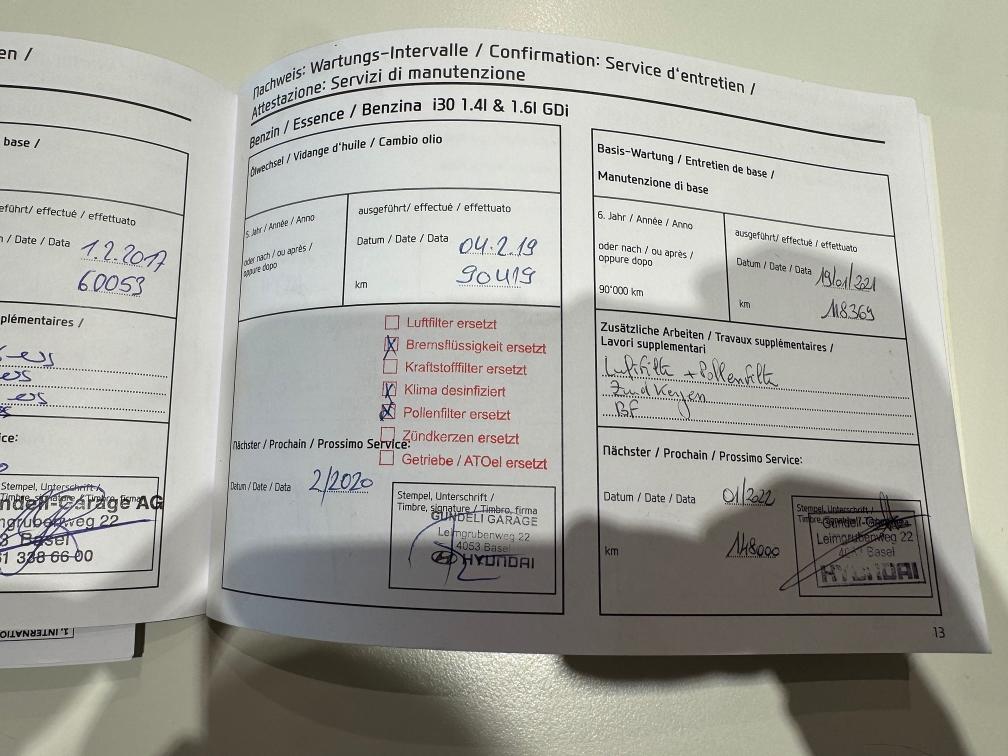 en /
base /
eführt/ effectué / effettuato
n / Date / Data 1.2.2017
60053
plémentaires /
ice:
Stempel, Unterschrift /
Timbre, signature / Timbro, firma
ndeli-Garage AG
mgrubenweg 22
3 Basel
1 338 66 00
1. INTERNATIO
Nachweis: Wartungs-Intervalle / Confirmation: Service d'entretien /
Attestazione: Servizi di manutenzione
Benzin / Essence / Benzina i30 1.4l & 1.6l GDi
Ölwechsel / Vidange d'huile / Cambio olio
5. Jahr / Année / Anno
oder nach / ou après /
oppure dopo
ausgeführt/ effectué / effettuato
Datum / Date / Data 04.2.19
km 90419
Luftfilter ersetzt
Bremsflüssigkeit ersetzt
Kraftstofffilter ersetzt
Klima desinfiziert
Pollenfilter ersetzt
Zündkerzen ersetzt
Getriebe / ATOel ersetzt
Nächster / Prochain / Prossimo Service:
Datum / Date / Data 2/2020
Stempel, Unterschrift /
Timbre, signature / Timbro, firma
GUNDELI GARAGE
Leimgrubenweg 22
4053 Basel
HYUNDAI
Basis-Wartung / Entretien de base /
Manutenzione di base
6. Jahr / Année / Anno
oder nach / ou après /
oppure dopo
90'000 km
ausgeführt/ effectué / effettuato
Datum / Date / Data 19/01/2021
km 118369
Zusätzliche Arbeiten / Travaux supplémentaires /
Lavori supplementari
Luftfilter + Pollenfilter
Zündkerzen
BF
Nächster / Prochain / Prossimo Service:
Datum / Date / Data 01/2022
km 148000
Stempel, Unterschrift /
Timbre, signature / Timbro, firma
Gundeli-Garage
Leimgrubenweg 22
4053 Basel
HYUNDAI
13